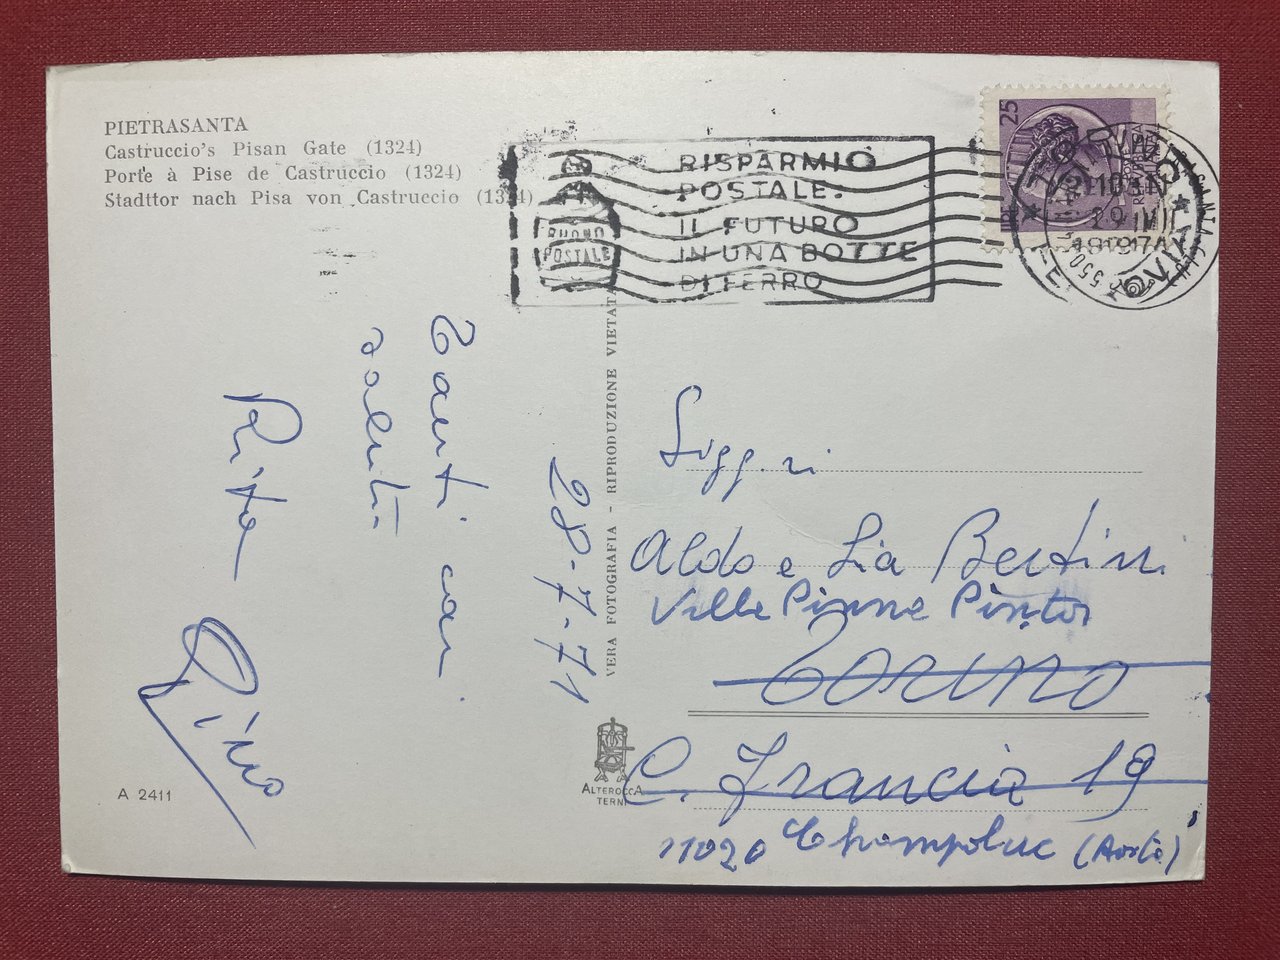 PIETRASANTA
Castruccio's Pisan Gate (1324)
Porte à Pise de Castruccio (1324)
Stadttor nach Pisa von Castruccio (1324)
RISPARMIO
POSTALE:
IL FUTURO
IN UNA BOTTE
DI FERRO
BUONO
POSTALE
25
Tanti cari
saluti
Rita
Gino
28-7-71
VERA FOTOGRAFIA - RIPRODUZIONE VIETATA
Sigg.ri
Aldo e Lia Bertini
Torino
C. Francia 19
11020 Champoluc (Aosta)
ALTEROCCA
TERNI
A 2411